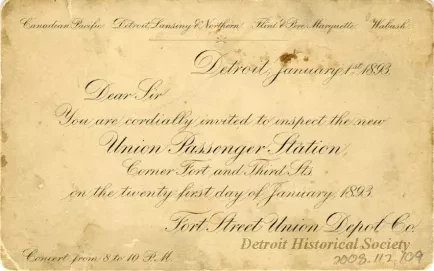 Canadian Pacific. Detroit, Lansing & Northern. Flint & Pere Marquette. Wabash.
Detroit, January 1st 1893.
Dear Sir
You are cordially invited to inspect the new
Union Passenger Station,
Corner Fort and Third Sts.
on the twenty first day of January, 1893.
Fort Street Union Depot Co.
Detroit Historical Society
Concert from 8 to 10 P.M.
2008.112.709